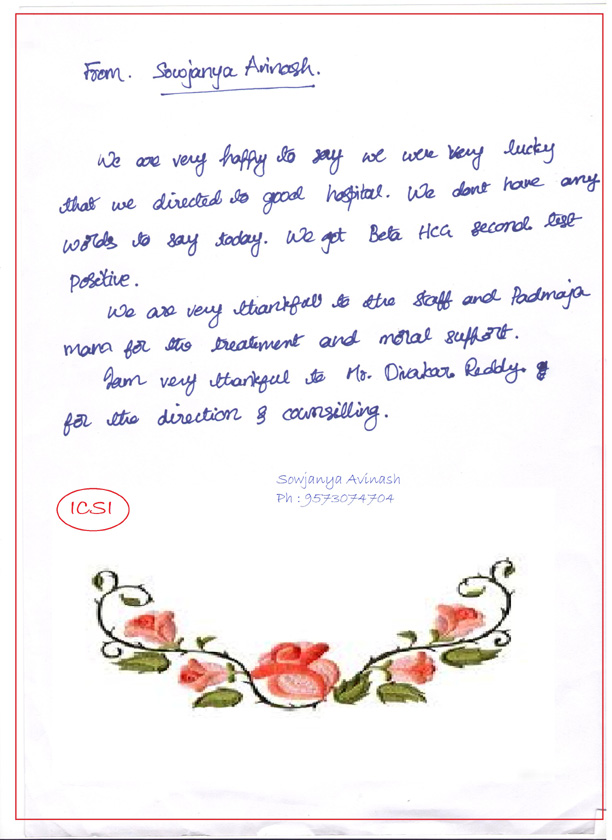 From. Sowjanya Avinash.
We are very happy to say we were very lucky
that we directed to good hospital. We dont have any
words to say today. We got Beta HCG second test
positive.
We are very thankful to the staff and Padmaja
mam for the treatement and moral support.
Iam very thankful to Mr. Divakar Reddy.
for the direction & counsilling.
Sowjanya Avinash
Ph : 9573074704
ICSI